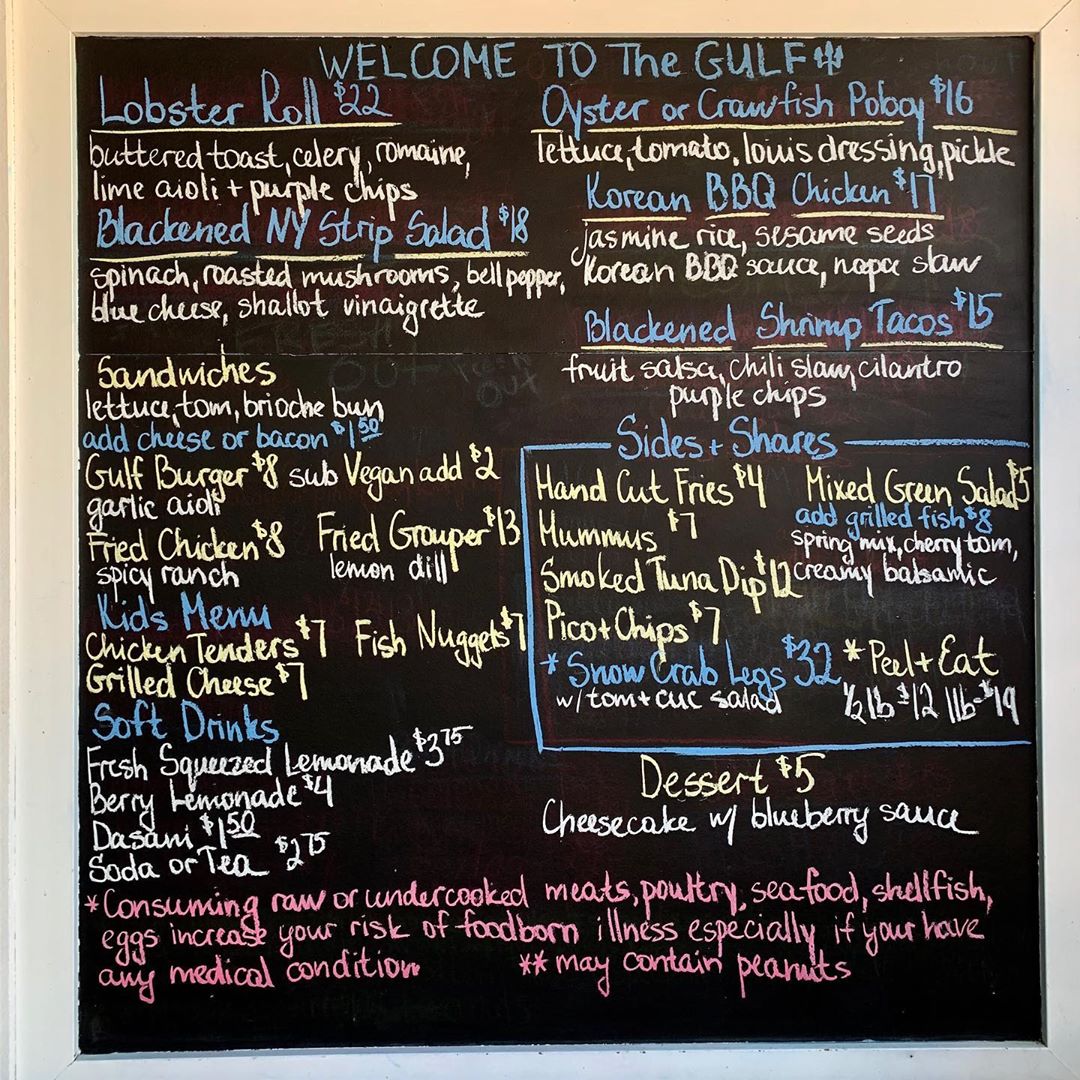 WELCOME TO The GULF
Lobster Roll $22
buttered toast, celery, romaine,
lime aioli + purple chips
Blackened NY Strip Salad $18
spinach, roasted mushrooms, bell pepper,
blue cheese, shallot vinaigrette
Oyster or Crawfish Poboy $16
lettuce, tomato, louis dressing, pickle
Korean BBQ Chicken $17
jasmine rice, sesame seeds
Korean BBQ sauce, napa slaw
Blackened Shrimp Tacos $15
fruit salsa, chili slaw, cilantro
purple chips
Sandwiches
lettuce, tom, brioche bun
add cheese or bacon $1.50
Gulf Burger $8 sub Vegan add $2
garlic aioli
Fried Chicken $8 Fried Grouper $13
spicy ranch lemon dill
Kids Menu
Chicken Tenders $7 Fish Nuggets $7
Grilled Cheese $7
Soft Drinks
Fresh Squeezed Lemonade $3 75
Berry Lemonade $4
Dasani $1 50
Soda or Tea $2 75
Sides + Shares
Hand Cut Fries $4
Mummus $7
Smoked Tuna Dip $12
Pico + Chips $7
* Snow Crab Legs $32
w/ tom + cuc salad
Mixed Green Salad $5
add grilled fish $8
spring mix, cherry tom,
creamy balsamic
* Peel + Eat
1/2 lb - $12 1lb - $19
Dessert $5
Cheesecake w/ blueberry sauce
* Consuming raw or undercooked meats, poultry, seafood, shellfish,
eggs increase your risk of foodborn illness especially if your have
any medical condition ** may contain peanuts